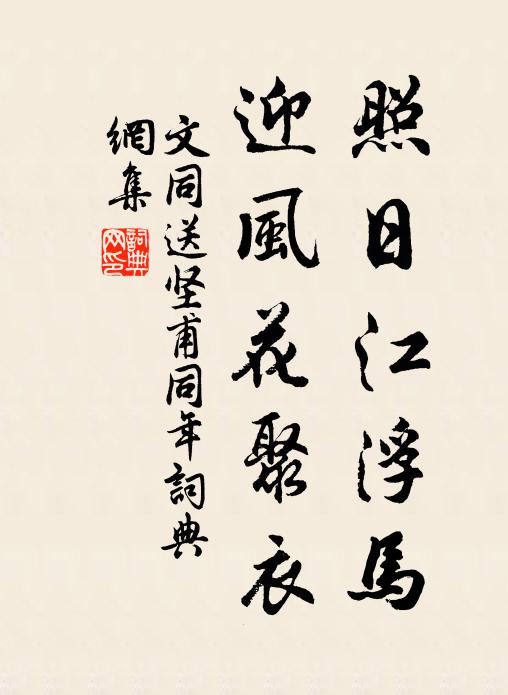 照日江浮馬
迎風花聚衣
文同送坚甫同年詞典
網集
詞典
网印